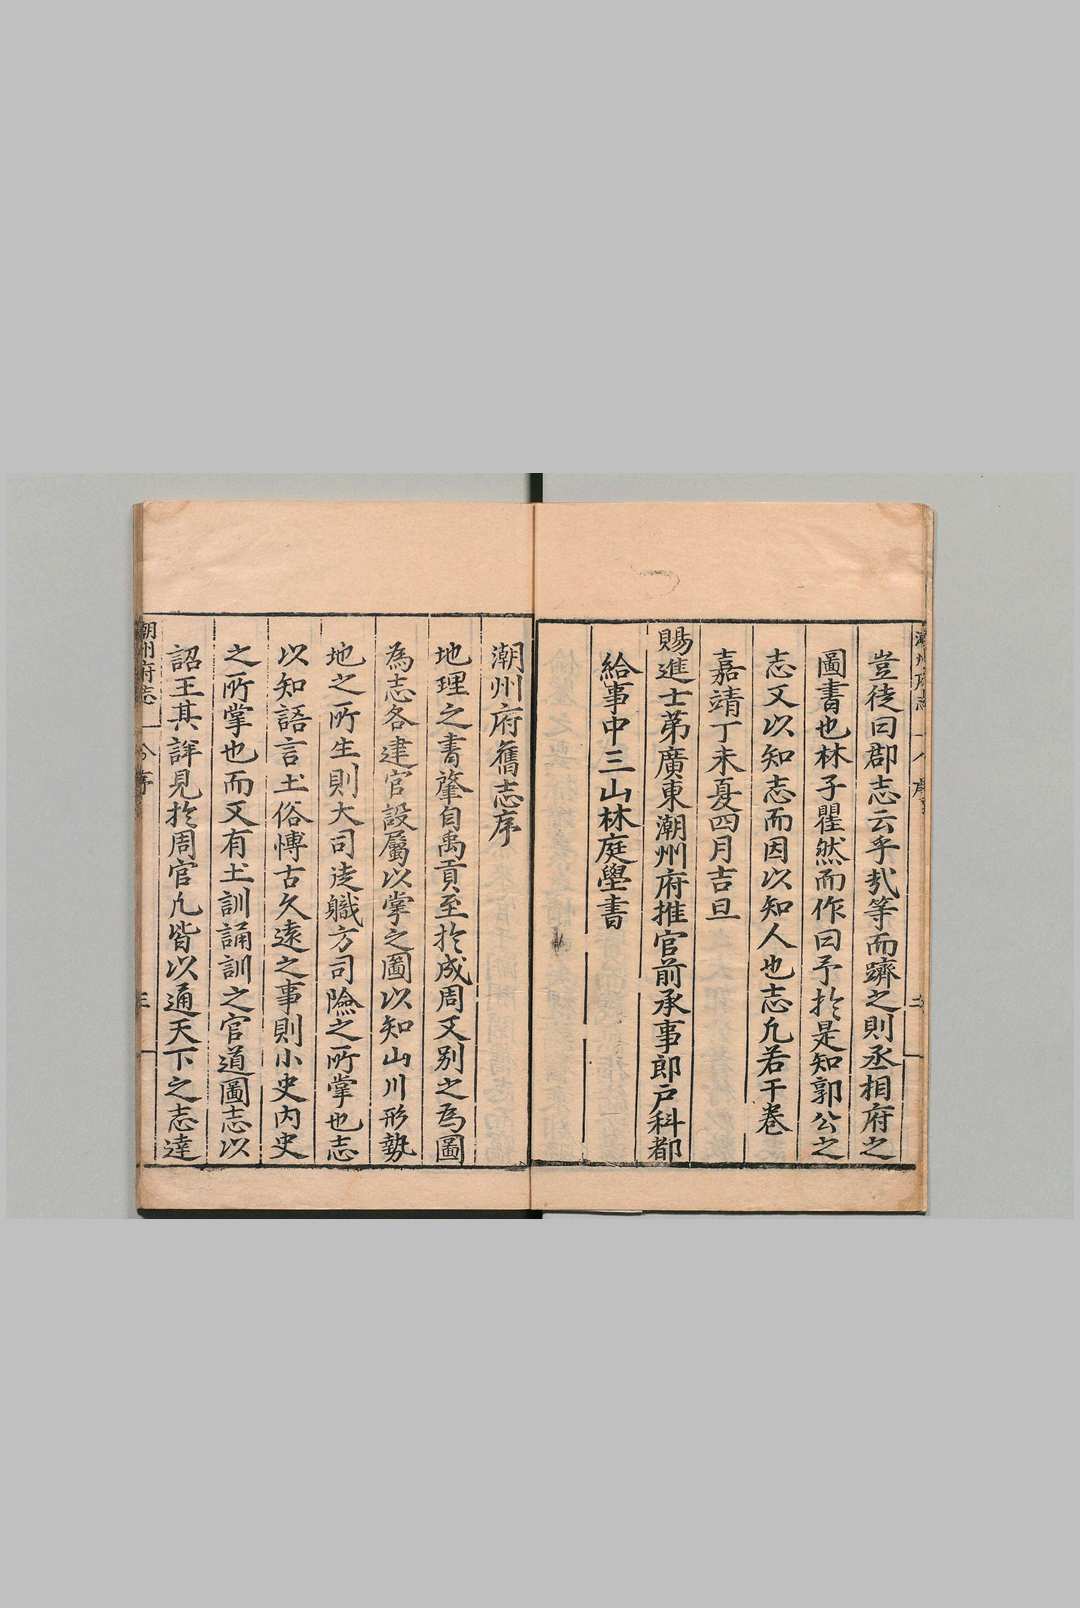 豈徒曰郡志云乎㢤等而躋之則丞相府之
圖書也林子瞿然而作曰予扵是知郭公之
志又以知志而因以知人也志凡若干巻
嘉靖丁未夏四月吉旦
賜進士苐廣東潮州府推官前承事郎戸科都
給事中三山林庭㘾書
潮州府舊志序
地理之書肇自禹貢至扵成周又别之為圖
為志各建官設屬以掌之圖以知山川形勢
地之所生則大司徒職方司險之所掌也志
以知語言土俗愽古久遠之事則小史内史
之所掌也而又有土訓誦訓之官道圖志以
詔王其詳見扵周官凡皆以通天下之志達
潮州府志
序
三